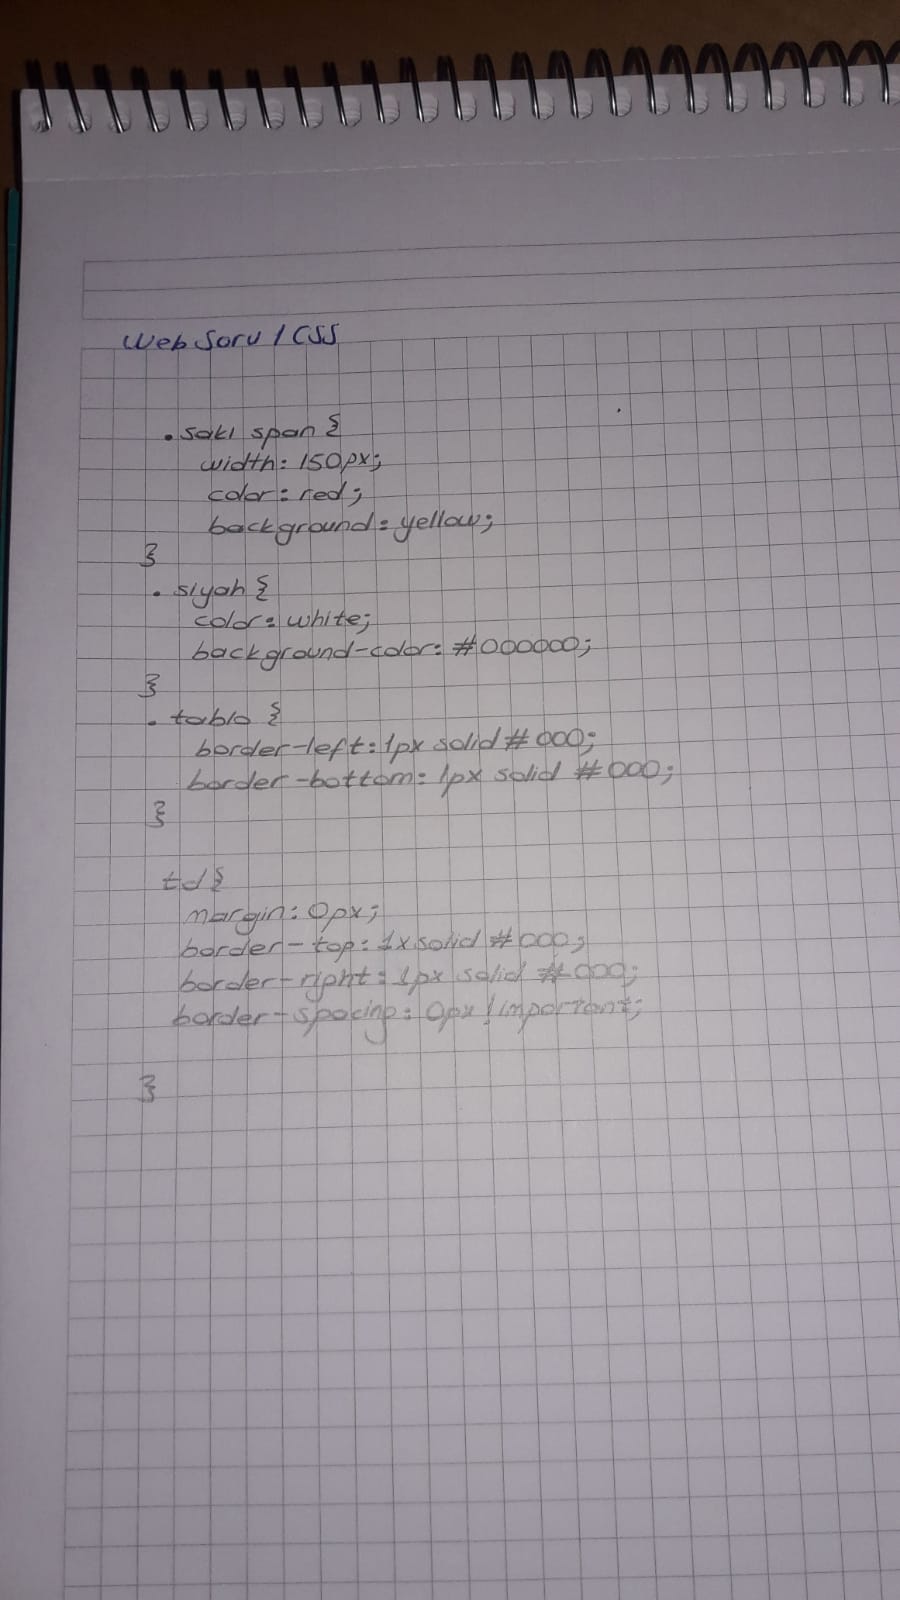 Web Soru / CSS
.sakı span {
width: 150px;
color: red;
background: yellow;
}
.siyah {
color: white;
background-color: #000000;
}
.tablo {
border-left: 1px solid #000;
border-bottom: 1px solid #000;
}
td {
margin: 0px;
border-top: 1x solid #000;
border-right: 1px solid #000;
border-spacing: 0px !important;
}